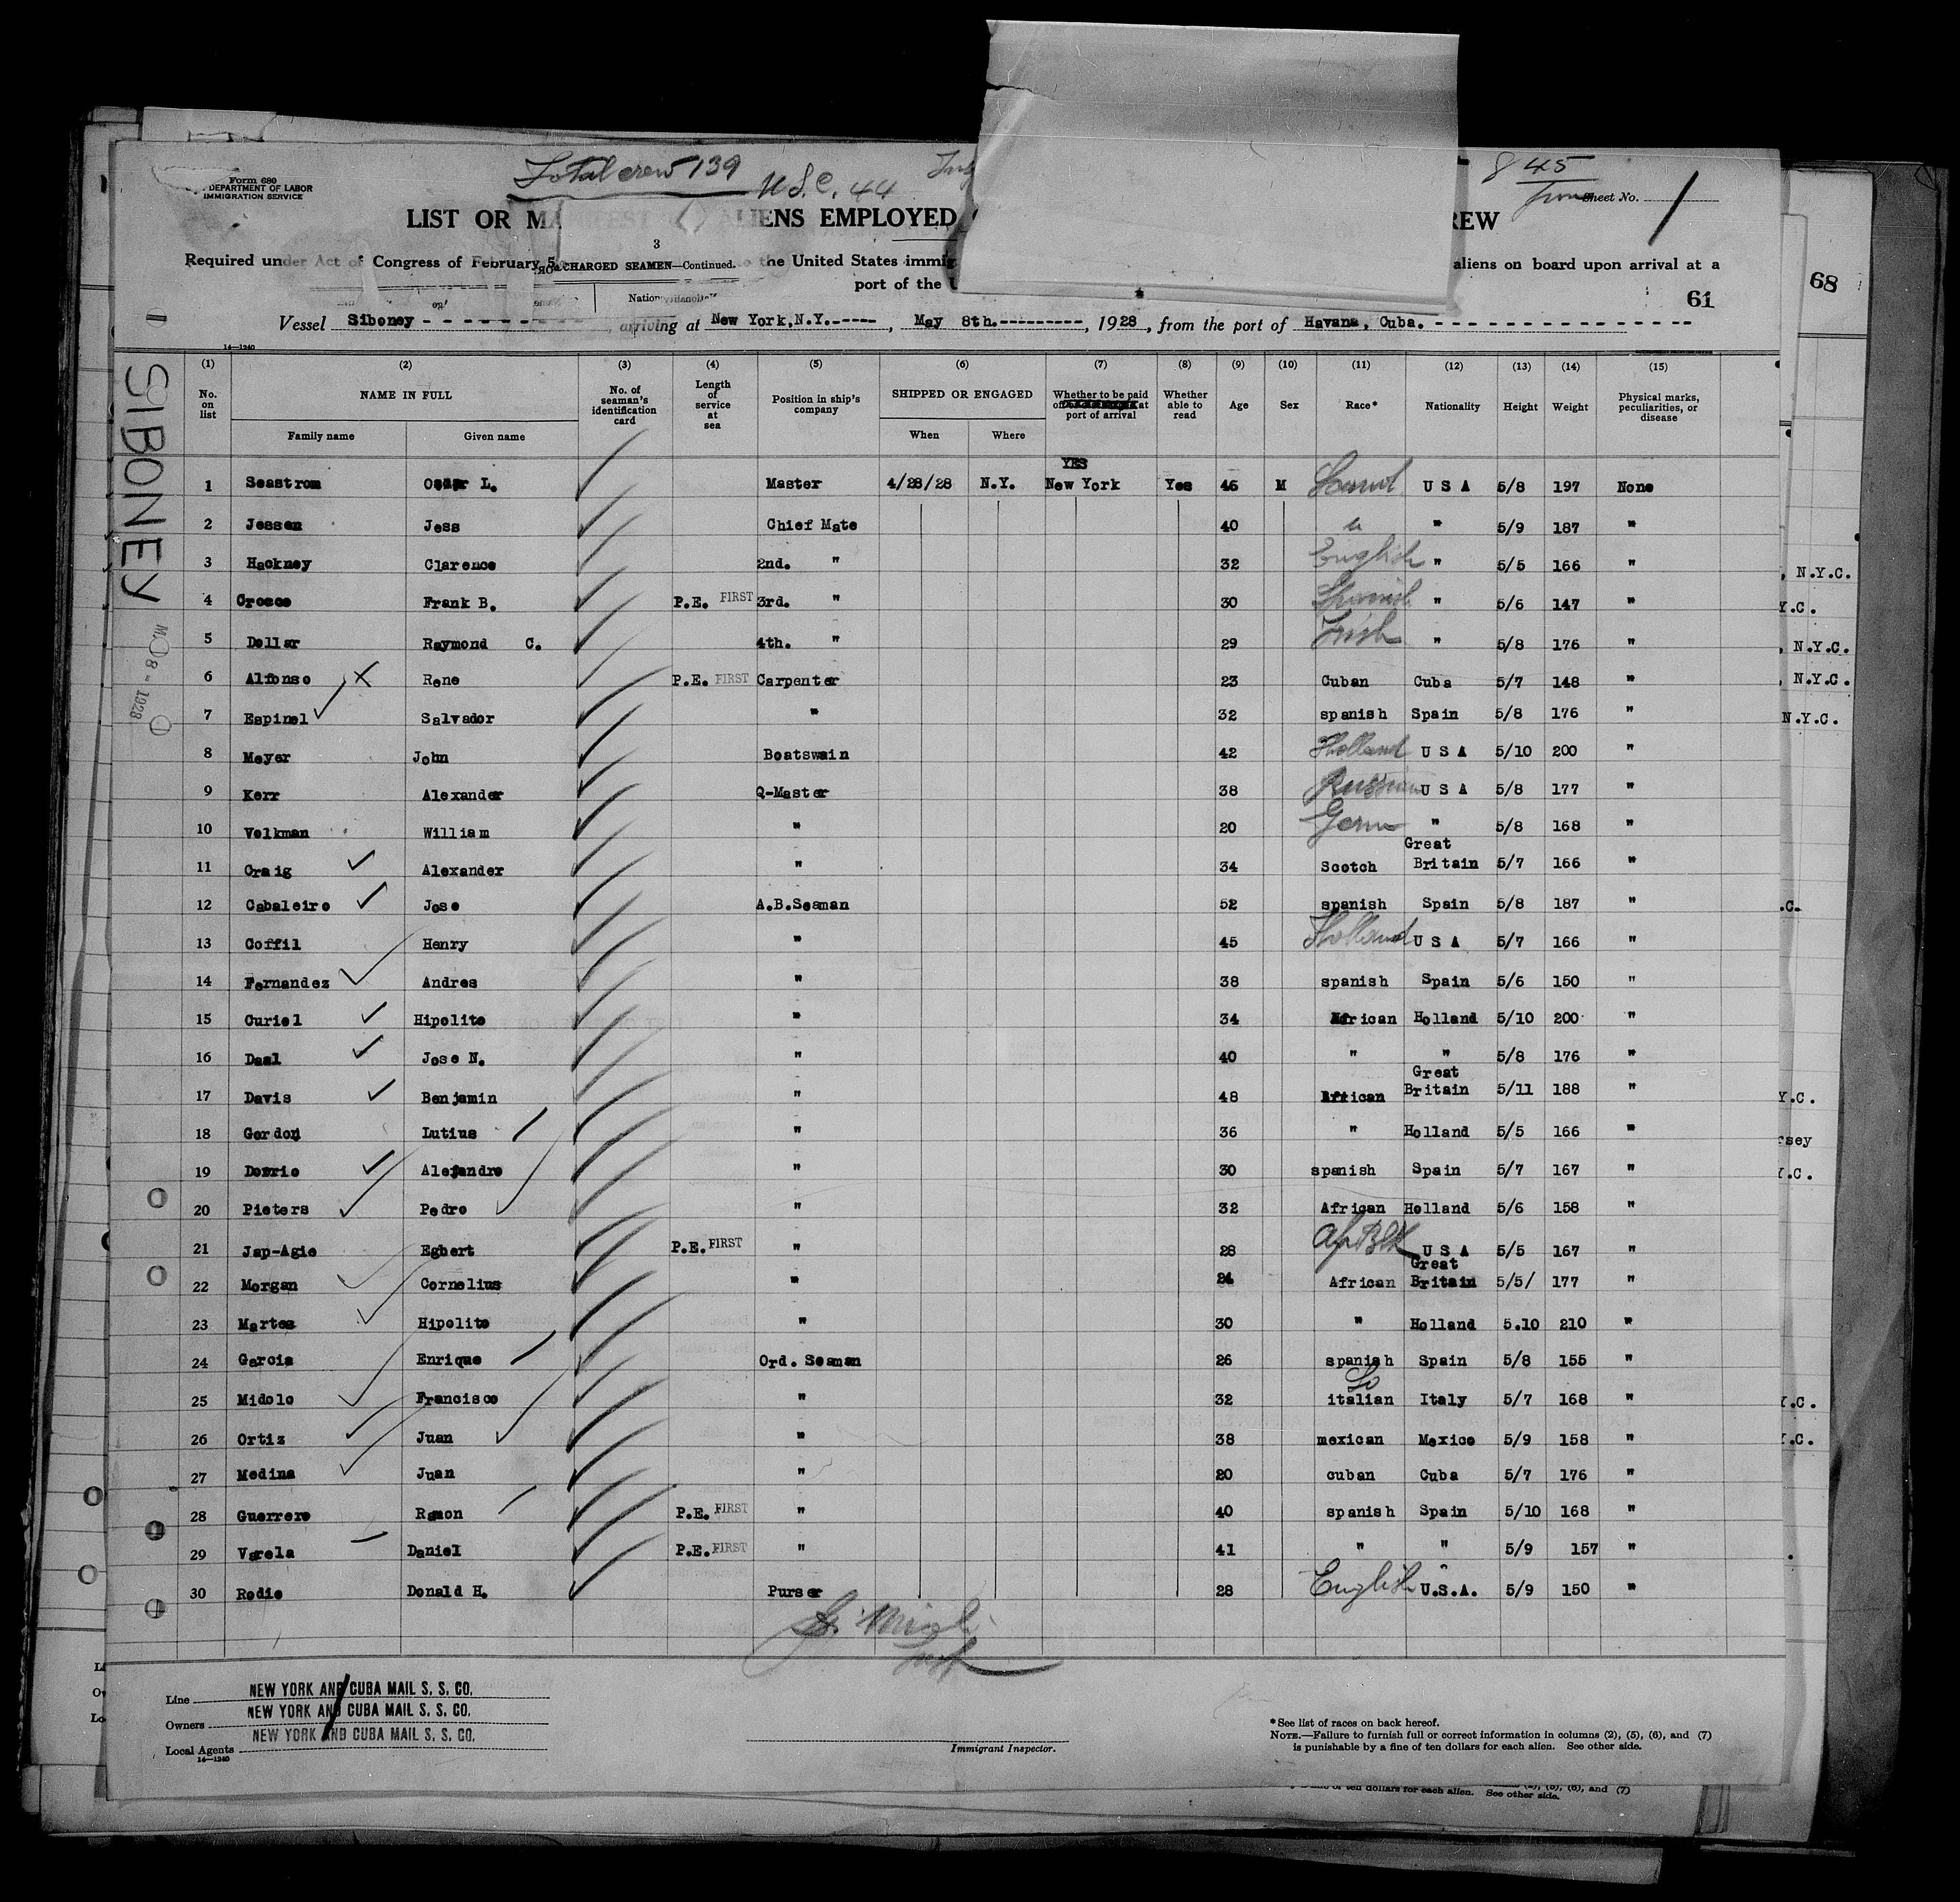 Total crew 139
U.S.C. 44
8 45
Form 680
DEPARTMENT OF LABOR
IMMIGRATION SERVICE
Sheet No. 1
LIST OR MANIFEST ALIENS EMPLOYED REW
3
Required under Act of Congress of February 5 CHARGED SEAMEN—Continued. the United States immig aliens on board upon arrival at a
port of the
61
68
Vessel Siboney, arriving at New York, N.Y., May 8th., 1928, from the port of Havana, Cuba.
14—1240
(1) (2) (3) (4) (5) (6) (7) (8) (9) (10) (11) (12) (13) (14) (15)
No. on list NAME IN FULL No. of seaman's identification card Length of service at sea Position in ship's company SHIPPED OR ENGAGED Whether to be paid off at port of arrival Whether able to read Age Sex Race* Nationality Height Weight Physical marks, peculiarities, or disease
Family name Given name When Where
YES
1 Seastrom Oscar L. Master 4/28/28 N.Y. New York Yes 45 M Scand USA 5/8 197 None
2 Jessen Jess Chief Mate 40 " " 5/9 187 "
3 Hackney Clarence 2nd. " 32 English " 5/5 166 "
4 Crosco Frank B. P.E. FIRST 3rd. " 30 Spanish " 5/6 147 "
5 Dollar Raymond C. 4th. " 29 Irish " 5/8 176 "
6 Alfonso Rene P.E. FIRST Carpenter 23 Cuban Cuba 5/7 148 "
7 Espinel Salvador " 32 spanish Spain 5/8 176 "
8 Meyer John Boatswain 42 Holland USA 5/10 200 "
9 Kerr Alexander Q-Master 38 Russian USA 5/8 177 "
10 Volkman William " 20 Germ " 5/8 168 "
11 Craig Alexander " 34 Scotch Great Britain 5/7 166 "
12 Cabaleiro Jose A.B.Seaman 52 spanish Spain 5/8 187 "
13 Coffil Henry " 45 Holland USA 5/7 166 "
14 Fernandez Andres " 38 spanish Spain 5/6 150 "
15 Curiel Hipolito " 34 African Holland 5/10 200 "
16 Daal Jose N. " 40 " " 5/8 176 "
17 Davis Benjamin " 48 African Great Britain 5/11 188 "
18 Gordon Lutius " 36 " Holland 5/5 166 "
19 Dorrio Alejandro " 30 spanish Spain 5/7 167 "
20 Pieters Pedro " 32 African Holland 5/6 158 "
21 Jap-Agie Egbert P.E. FIRST " 28 Af Blk USA 5/5 167 "
22 Morgan Cornelius " 24 African Great Britain 5/5/ 177 "
23 Martes Hipolito " 30 " Holland 5.10 210 "
24 Garcia Enrique Ord. Seaman 26 spanish Spain 5/8 155 "
25 Midolo Francisco " 32 So italian Italy 5/7 168 "
26 Ortiz Juan " 38 mexican Mexico 5/9 158 "
27 Medina Juan " 20 cuban Cuba 5/7 176 "
28 Guerrero Ramon P.E. FIRST " 40 spanish Spain 5/10 168 "
29 Varela Daniel P.E. FIRST " 41 " " 5/9 157 "
30 Rodie Donald H. Purser 28 English U.S.A. 5/9 150 "
SIBONEY
8 - 1928
, N.Y.C.
Y.C.
, N.Y.C.
, N.Y.C.
N.Y.C.
.C.
Y.C.
rsey
Y.C.
Y.C.
Y.C.
Line NEW YORK AND CUBA MAIL S. S. CO.
Owners NEW YORK AND CUBA MAIL S. S. CO.
Local Agents NEW YORK AND CUBA MAIL S. S. CO.
14—1240
Immigrant Inspector.
*See list of races on back hereof.
NOTE.—Failure to furnish full or correct information in columns (2), (5), (6), and (7)
is punishable by a fine of ten dollars for each alien. See other side.
of ten dollars for each alien. See other side. (2), (5), (6), and (7)